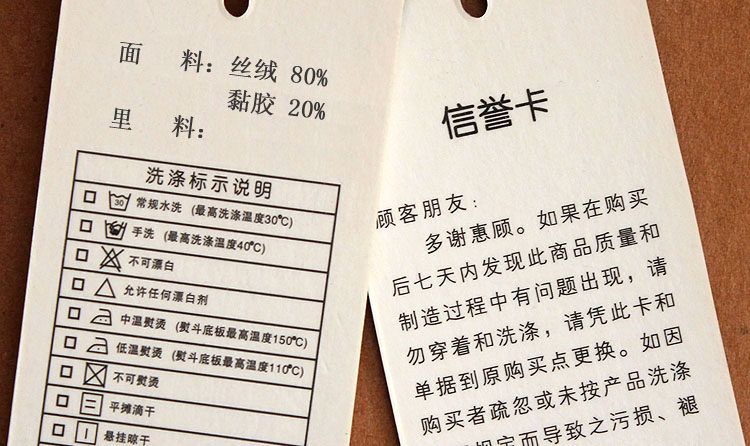 面 料：丝绒 80%
黏胶 20%
里 料：
洗涤标示说明
30 常规水洗 (最高洗涤温度30℃)
手洗 (最高洗涤温度40℃)
不可漂白
允许任何漂白剂
中温熨烫 (熨斗底板最高温度150℃)
低温熨烫 (熨斗底板最高温度110℃)
不可熨烫
平摊滴干
悬挂晾干
信誉卡
顾客朋友：
多谢惠顾。如果在购买
后七天内发现此商品质量和
制造过程中有问题出现，请
勿穿着和洗涤，请凭此卡和
单据到原购买点更换。如因
购买者疏忽或未按产品洗涤
规定而导致之污损、褪